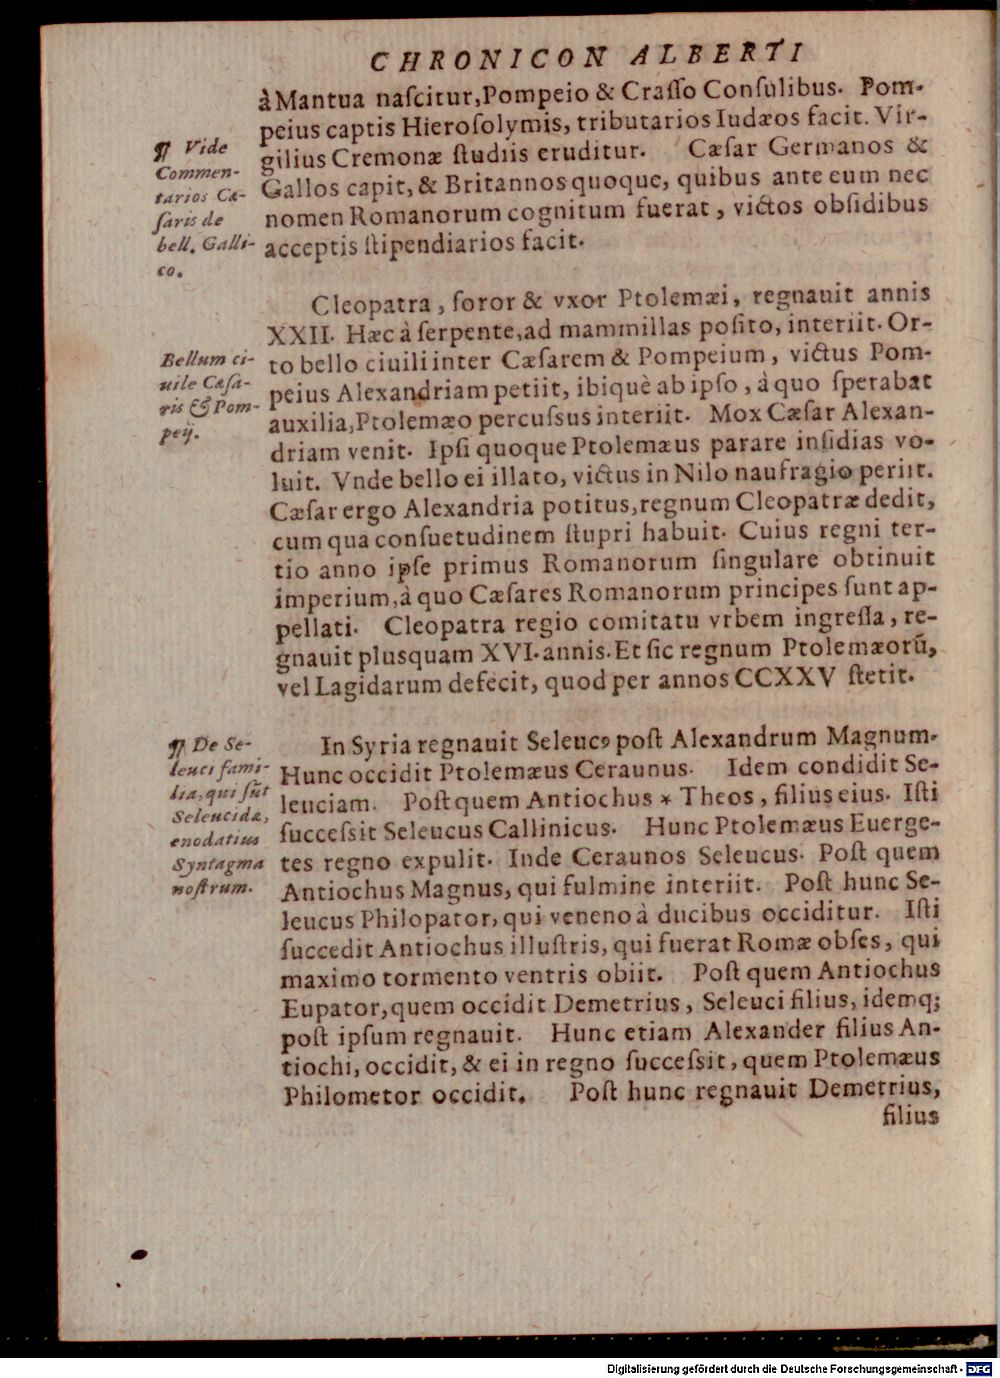 CHRONICON ALBERTI
à Mantua naſcitur, Pompeio & Craſſo Conſulibus. Pom-
peius captis Hieroſolymis, tributarios Iudæos facit. Vir-
gilius Cremonæ ſtudiis eruditur. Cæſar Germanos &
Gallos capit, & Britannos quoque, quibus ante eum nec
nomen Romanorum cognitum fuerat, victos obſidibus
acceptis ſtipendiarios facit.
¶ Vide
Commen-
tarios Cæ-
ſaris de
bell. Galli-
co.
Cleopatra, ſoror & vxor Ptolemæi, regnauit annis
XXII. Hæc à ſerpente, ad mammillas poſito, interiit. Or-
to bello ciuili inter Cæſarem & Pompeium, victus Pom-
peius Alexandriam petiit, ibiquè ab ipſo, à quo ſperabat
auxilia, Ptolemæo percuſsus interiit. Mox Cæſar Alexan-
driam venit. Ipſi quoque Ptolemæus parare inſidias vo-
luit. Vnde bello ei illato, victus in Nilo naufragio periit.
Cæſar ergo Alexandria potitus, regnum Cleopatræ dedit,
cum qua conſuetudinem ſtupri habuit. Cuius regni ter-
tio anno ipſe primus Romanorum ſingulare obtinuit
imperium, à quo Cæſares Romanorum principes ſunt ap-
pellati. Cleopatra regio comitatu vrbem ingreſſa, re-
gnauit plusquam XVI. annis. Et ſic regnum Ptolemæorũ,
vel Lagidarum defecit, quod per annos CCXXV ſtetit.
Bellum ci-
uile Cæſa-
ris & Pom-
peij.
In Syria regnauit Seleucꝰ poſt Alexandrum Magnum.
Hunc occidit Ptolemæus Ceraunus. Idem condidit Se-
leuciam. Poſt quem Antiochus * Theos, filius eius. Iſti
ſucceſsit Seleucus Callinicus. Hunc Ptolemæus Euerge-
tes regno expulit. Inde Ceraunos Seleucus. Poſt quem
Antiochus Magnus, qui fulmine interiit. Poſt hunc Se-
leucus Philopator, qui veneno à ducibus occiditur. Iſti
ſuccedit Antiochus illuſtris, qui fuerat Romæ obſes, qui
maximo tormento ventris obiit. Poſt quem Antiochus
Eupator, quem occidit Demetrius, Seleuci filius, idemq;
poſt ipſum regnauit. Hunc etiam Alexander filius An-
tiochi, occidit, & ei in regno ſucceſsit, quem Ptolemæus
Philometor occidit. Poſt hunc regnauit Demetrius,
filius
¶ De Se-
leuci fami-
lia, qui ſũt
Seleucidæ,
enodatius
Syntagma
noſtrum.
Digitalisierung gefördert durch die Deutsche Forschungsgemeinschaft - DFG